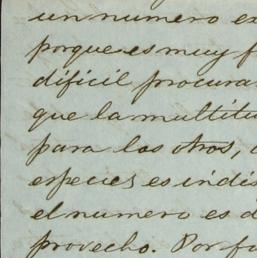 un numero ex
porque es muy f
dificil procura
que la multitu
para los otros,
especies es indis
el numero es d
provecho. Por fu